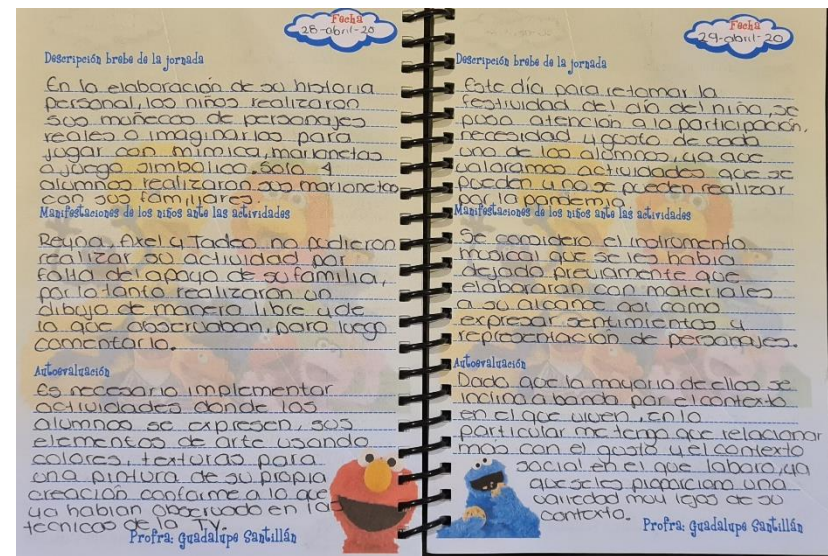 Fecha
28-abril-20
Descripción brebe de la jornada
En la elaboración de su historia
personal, los niños realizaron
sus muñecos de personajes
reales o imaginarios para
jugar con mímica, marionetas
o juego simbolico. Solo 4
alumnos realizaron sus marionetas
con sus familiares.
Manifestaciones de los niños ante las actividades
Reyna, Axel y Tadeo no pudieron
realizar su actividad por
falta del apoyo de su familia,
por lo tanto realizaron un
dibujo de manera libre y de
lo que observaban, para luego
comentarlo.
Autoevaluación
Es necesario implementar
actividades donde los
alumnos se expresen, sus
elementos de arte usando
colores, texturas para
una pintura de su propia
creación conforme a lo que
ya habían observado en las
tecnicas de la TV.
Profra: Guadalupe Santillán
Fecha
29-abril-20
Descripción brebe de la jornada
Este día para retomar la
festividad del día del niño, se
puso atención a la participación,
necesidad y gusto de cada
uno de los alumnos, ya que
valoramos actividades que se
pueden y no se pueden realizar
por la pandemia.
Manifestaciones de los niños ante las actividades
Se considero el instrumento
musical que se les había
dejado previamente que
elaboraran con materiales
a su alcance asi como
expresar sentimientos y
representación de personajes.
Autoevaluación
Dado que la mayoria de ellos se
inclina a banda por el contexto
en el que viven, en lo
particular me tengo que relacionar
más con el gusto y el contexto
social en el que laboro, ya
que se les proporciono una
variedad muy lejos de su
contexto.
Profra: Guadalupe Santillán